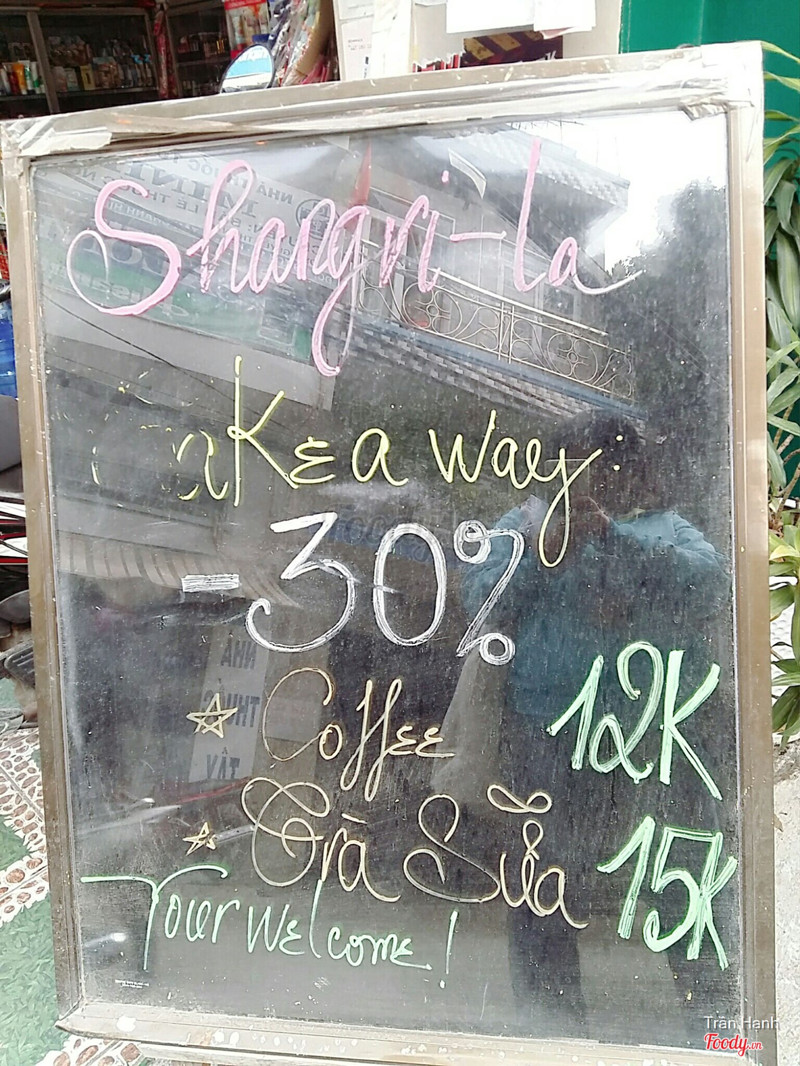 Shangri-la
akeaway:
-30%
☆ Coffee 12K
☆ Trà Sữa 15K
Your welcome!
NHÀ
THUỐC
TÂY
Trần Hạnh
Foody.vn